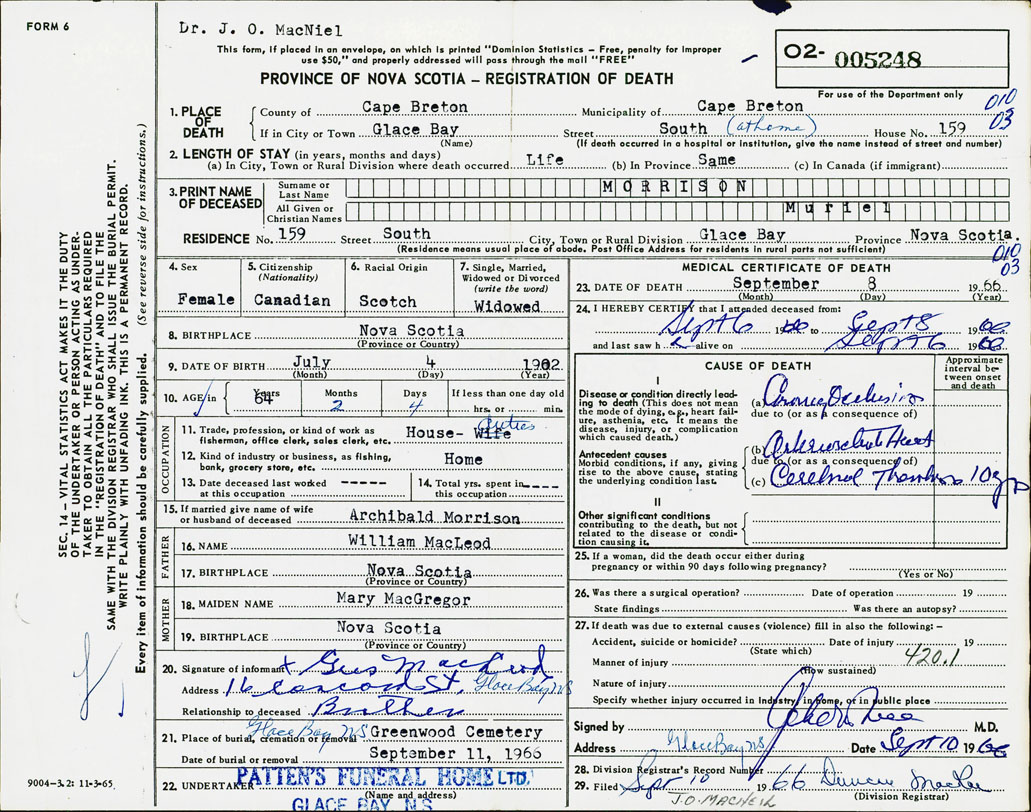 FORM 6
Dr. J. O. MacNiel
This form, if placed in an envelope, on which is printed "Dominion Statistics – Free, penalty for improper
use $50," and properly addressed will pass through the mail "FREE"
PROVINCE OF NOVA SCOTIA – REGISTRATION OF DEATH
O2- 005248
For use of the Department only
010
03
1. PLACE OF DEATH
County of Cape Breton Municipality of Cape Breton
If in City or Town Glace Bay Street South (at home) House No. 159
(Name) (If death occurred in a hospital or institution, give the name instead of street and number)
2. LENGTH OF STAY (in years, months and days)
(a) In City, Town or Rural Division where death occurred Life (b) In Province Same (c) In Canada (if immigrant)
3. PRINT NAME OF DECEASED
Surname or Last Name MORRISON
All Given or Christian Names Muriel
RESIDENCE No. 159 Street South City, Town or Rural Division Glace Bay Province Nova Scotia.
(Residence means usual place of abode. Post Office Address for residents in rural parts not sufficient)
010
03
4. Sex
Female
5. Citizenship
(Nationality)
Canadian
6. Racial Origin
Scotch
7. Single, Married,
Widowed or Divorced
(write the word)
Widowed
8. BIRTHPLACE Nova Scotia
(Province or Country)
9. DATE OF BIRTH July 4 1902
(Month) (Day) (Year)
10. AGE in Years Months Days If less than one day old
64 2 4 hrs. or min.
OCCUPATION
11. Trade, profession, or kind of work as
fisherman, office clerk, sales clerk, etc. House- Wife duties
12. Kind of industry or business, as fishing,
bank, grocery store, etc. Home
13. Date deceased last worked
at this occupation -----
14. Total yrs. spent in
this occupation -----
15. If married give name of wife
or husband of deceased Archibald Morrison
FATHER
16. NAME William MacLeod
17. BIRTHPLACE Nova Scotia
(Province or Country)
MOTHER
18. MAIDEN NAME Mary MacGregor
19. BIRTHPLACE Nova Scotia
(Province or Country)
20. Signature of informant x Gus MacLeod
Address 16 Concord St, Glace Bay NS
Relationship to deceased Brother
21. Place of burial, cremation or removal Glace Bay NS Greenwood Cemetery
Date of burial or removal September 11, 1966
22. UNDERTAKER PATTEN'S FUNERAL HOME LTD.
(Name and address)
GLACE BAY, N.S.
MEDICAL CERTIFICATE OF DEATH
23. DATE OF DEATH September 8 1966
(Month) (Day) (Year)
24. I HEREBY CERTIFY that I attended deceased from:
Sept 6 1966 to Sept 8 1966
and last saw h er alive on Sept 6 1966
CAUSE OF DEATH
Approximate
interval be-
tween onset
and death
I
Disease or condition directly lead-
ing to death (This does not mean
the mode of dying, e.g., heart fail-
ure, asthenia, etc. It means the
disease, injury, or complication
which caused death.)
(a) Coronary Occlusion
due to (or as a consequence of)
Antecedent causes
Morbid conditions, if any, giving
rise to the above cause, stating
the underlying condition last.
(b) Heart
due to (or as a consequence of)
(c) Cerebral Thrombosis 10 yrs
II
Other significant conditions
contributing to the death, but not
related to the disease or condi-
tion causing it.
25. If a woman, did the death occur either during
pregnancy or within 90 days following pregnancy?
(Yes or No)
26. Was there a surgical operation? Date of operation 19
State findings Was there an autopsy?
27. If death was due to external causes (violence) fill in also the following: –
Accident, suicide or homicide? Date of injury 19
(State which) 420.1
Manner of injury
(How sustained)
Nature of injury
Specify whether injury occurred in Industry, in home, or in public place
Signed by M.D.
Address Glace Bay NS Date Sept 10 1966
28. Division Registrar's Record Number
29. Filed Sept 10 1966
J.O. MACNEIL (Division Registrar)
SEC. 14 – VITAL STATISTICS ACT MAKES IT THE DUTY
OF THE UNDERTAKER OR PERSON ACTING AS UNDER-
TAKER TO OBTAIN ALL THE PARTICULARS REQUIRED
IN THE "REGISTRATION OF DEATH" AND TO FILE THE
SAME WITH THE DIVISION REGISTRAR WHO SHALL ISSUE THE BURIAL PERMIT.
WRITE PLAINLY WITH UNFADING INK. THIS IS A PERMANENT RECORD.
Every item of information should be carefully supplied. (See reverse side for instructions.)
9004-3.2: 11-3-65